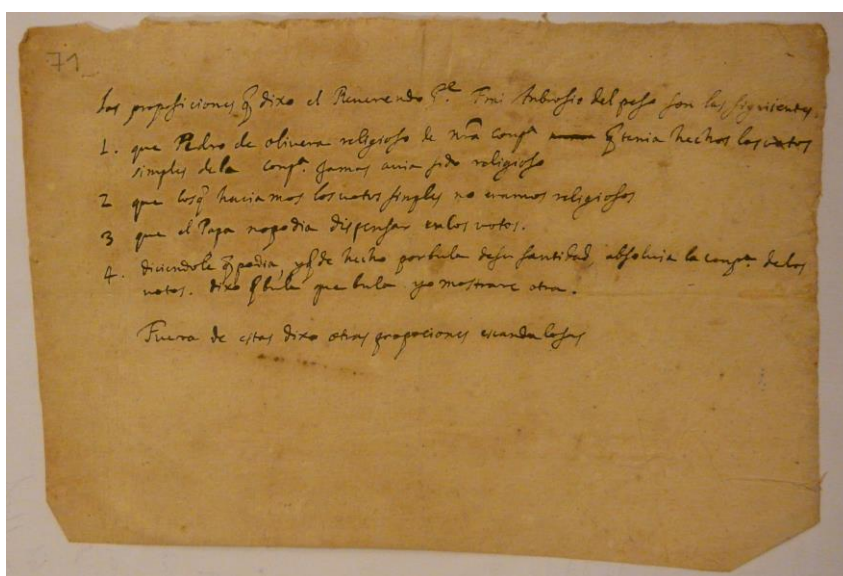 71
Las proposiciones q̃ dixo el Reuerendo Pe. Frai Ambrosio del peso son las siguientes.
1. que Pedro de oliuera religioso de nra̅ compa. q̃ tenia hechos los votos
simples de la compa. Jamas auia sido religioso
2 que los q̃ haciamos los votos simples no eramos religiosos
3 que el Papa no podia dispensar en los votos.
4. diciendole q̃ podia, y q̃ de hecho por bula de su santidad, absoluia la compa. de los
votos. dixo q̃ bula que bula yo mostrare otra.
Fuera de estas dixo otras propociones escandalosas